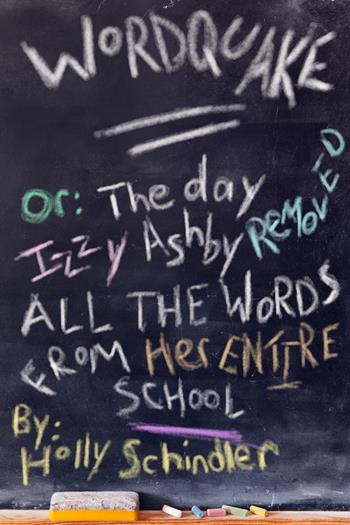 WORDQUAKE
Or: The day
Izzy Ashby REMOVED
ALL THE WORDS
FROM Her ENTIRE
SCHOOL
By:
Holly Schindler